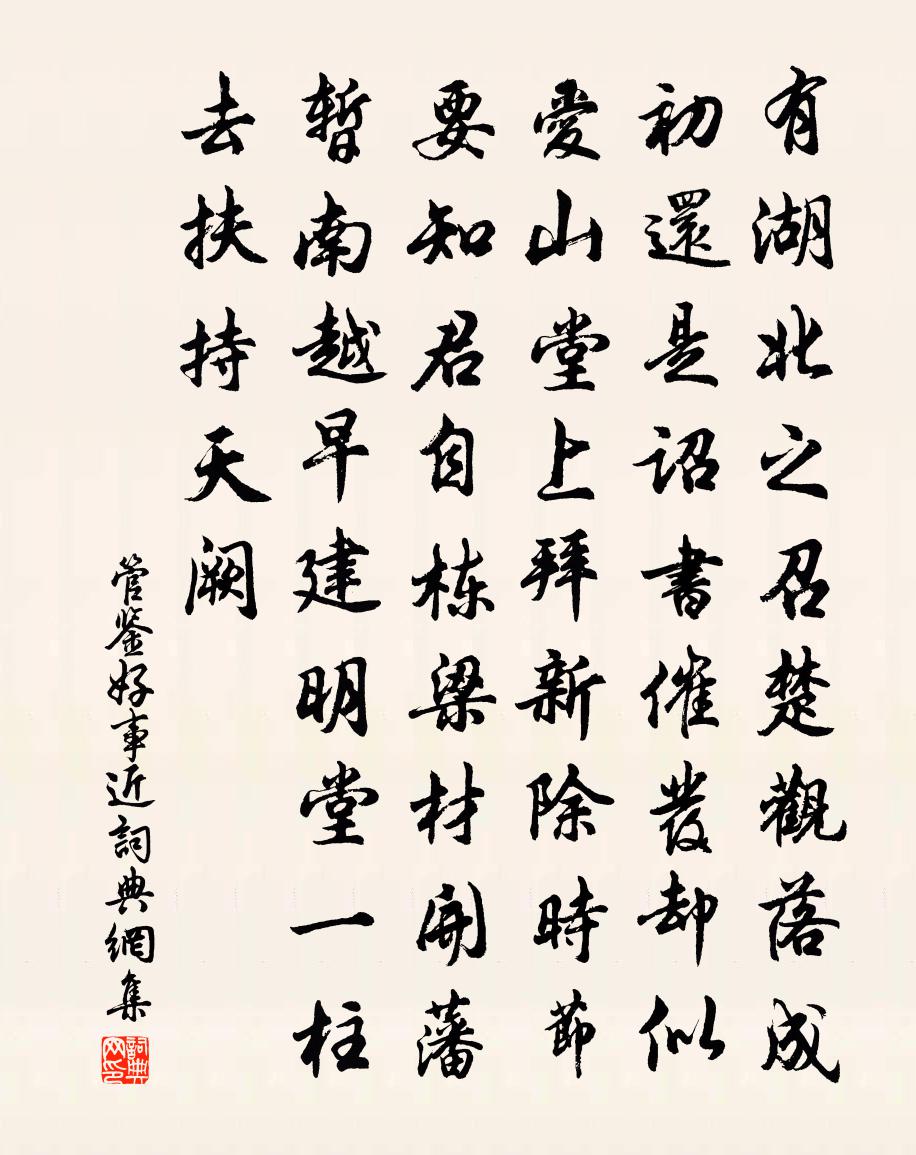 有湖北之召楚觀落成
初還是詔書催發却似
愛山堂上拜新除時節
要知君自棟梁材開藩
暫南越早建明堂一柱
去扶持天闕
管鉴好事近詞典網集
詞典网印